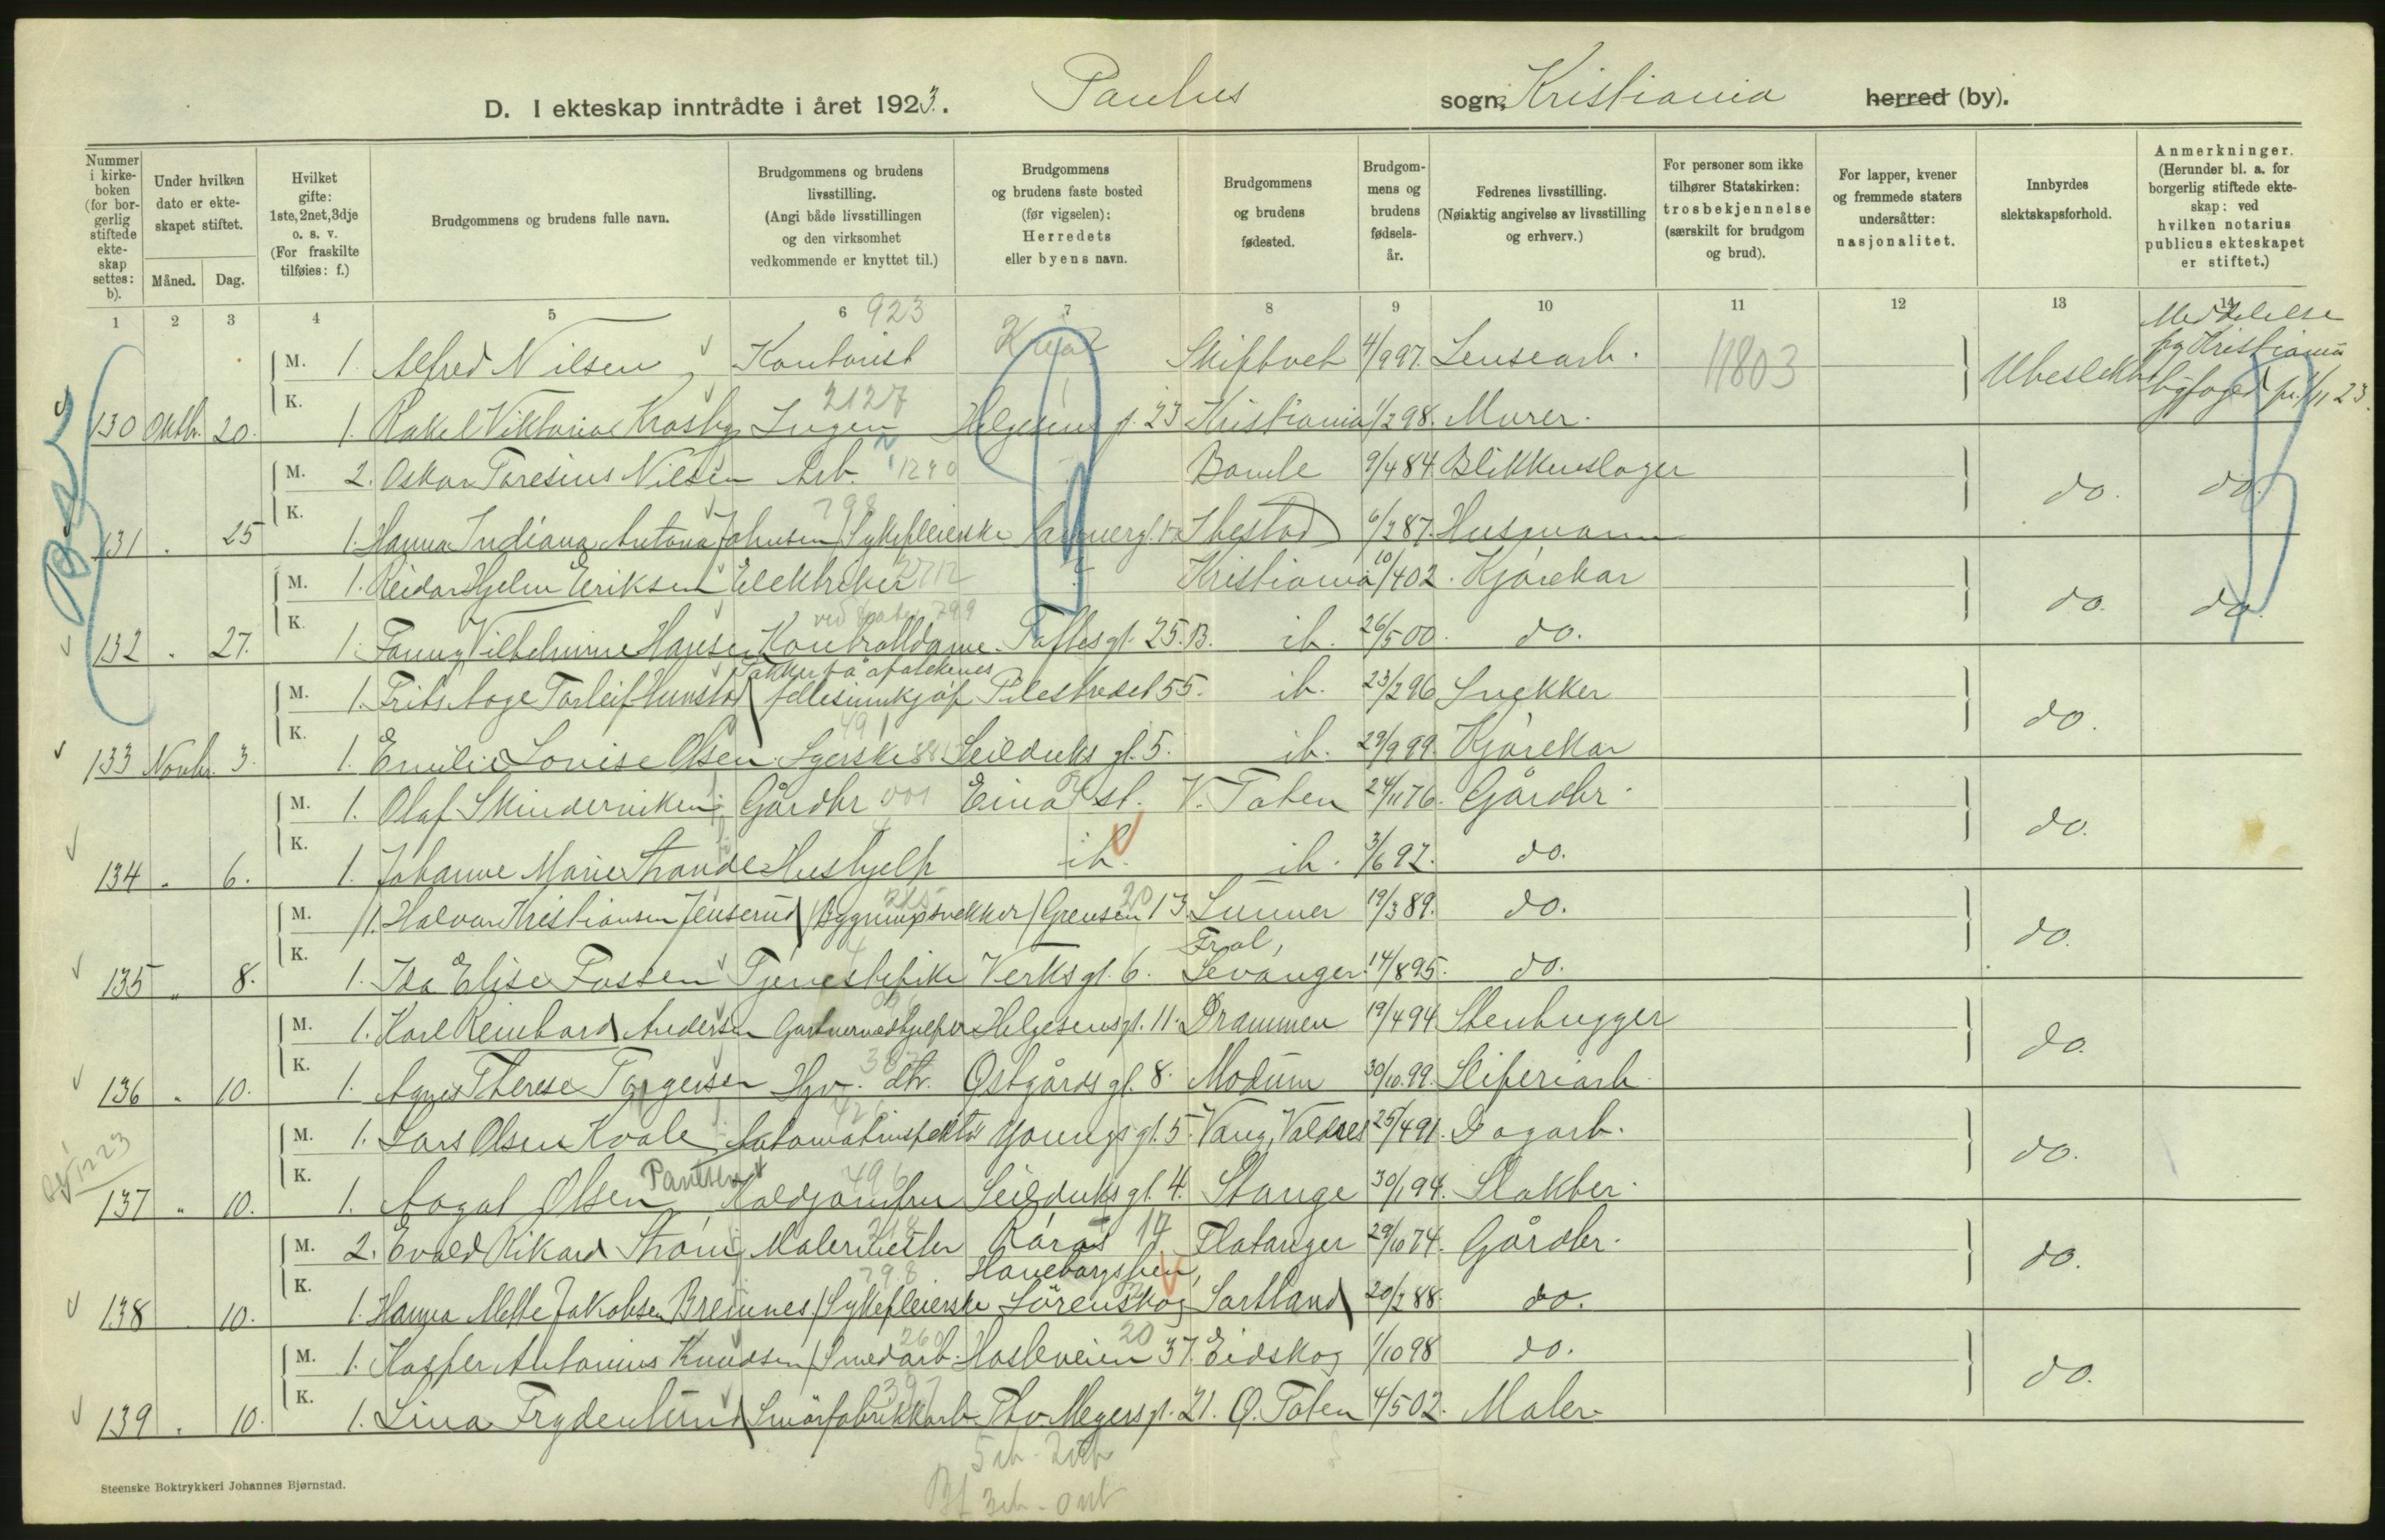 D. I ekteskap inntrådte i året 1923. Paulus sogn, Kristiania herred (by).
Nummer i kirkeboken (for borgerlig stiftede ekteskap settes: b).
Under hvilken dato er ekteskapet stiftet.
Måned. Dag.
Hvilket gifte: 1ste, 2net, 3dje o. s. v. (For fraskilte tilføies: f.)
Brudgommens og brudens fulle navn.
Brudgommens og brudens livsstilling. (Angi både livsstillingen og den virksomhet vedkommende er knyttet til.)
Brudgommens og brudens faste bosted (før vigselen): Herredets eller byens navn.
Brudgommens og brudens fødested.
Brudgommens og brudens fødselsår.
Fedrenes livsstilling. (Nøiaktig angivelse av livsstilling og erhverv.)
For personer som ikke tilhører Statskirken: trosbekjennelse (særskilt for brudgom og brud).
For lapper, kvener og fremmede staters undersåtter: nasjonalitet.
Innbyrdes slektskapsforhold.
Anmerkninger. (Herunder bl. a. for borgerlig stiftede ekteskap: ved hvilken notarius publicus ekteskapet er stiftet.)
1 2 3 4 5 6 7 8 9 10 11 12 13 14
923
M. 1. Alfred Nilsen Kontorist Skiptvet 4/9 97. Lensearb. 11803 Ubeslektet Meddelelse fra Kristiania byfoged pr. 1/11 23.
2127
130 Oktbr. 20. K. 1. Rakel Viktoria Krosby Ingen Helgesens g. 23 Kristiania 1/2 98. Murer.
M. 2. Oskar Taresius Nilsen Arb. 1290 Bamle 9/4 84. Blikkenslager do. do.
798
131 . 25 K. 1. Hanna Indiana Antona Johnsen Sykepleierske Ibestad 6/2 87. Husmann
M. 1. Reidar Hjelm Eriksen Elektriker Kristiania 10/4 02. Kjørekar do. do.
799
132 . 27. K. 1. Fanny Vilhelmine Hansen Kontrolldame Toftesgt. 25.B. ib. 26/5 00. do.
M. 1. Frits Aage Torleif Hunstad Pakker på apotekenes fellesinnkjøp Pilestredet 55. ib. 23/2 96 Snekker do.
491
133 Novbr. 3. K. 1. Emilie Lovise Olsen Syerske Seilduks gt. 5. ib. 29/9 99. Kjørekar
M. 1. Olaf Skinderviken Gårdbr 001 Eina st. V. Toten 24/11 76. Gårdbr. do.
134 . 6. K. 1. Johanne Marie Strande Hushjelp ib. ib. 3/6 92. do.
M. 1. Halvar Kristiansen Jenserud Bygningssnekker Grensen 13 Lunner 19/3 89. do. do.
135 " 8. K. 1. Ida Elise Fossen Tjenestepike Verksgt. 6. Frol, Levanger. 14/8 95. do.
M. 1. Karl Reinhard Andersen Gartnermedhjelper Helgesensgt. 11. Drammen 19/4 94 Stenhugger do.
136 . 10. K. 1. Agnes Therese Torgersen Hpv. dtr. Østgårds gt. 8. Modum 30/10. 99. Sliperiarb.
M. 1. Lars Olsen Kvale Automatinspektør Youngsgt. 5. Vang, Valdres 25/4 91. Dagarb. do.
496
137 " 10. K. 1. Aagot Olsen Koldjomfru Seilduksgt. 4. Stange 30/1 94. Slakter.
M. 2. Evald Rikard Strøm Malermester Røros 17 Flatanger 29/10 74. Gårdbr. do.
798
138 10. K. 1. Hanna Mette Jakobsen Breinnes Sykepleierske Haneborgsveen, Lørenskog Sortland 20/2 88. do.
M. 1. Kasper Antonius Knudsen Smedarb. Hasleveien 37. Eidskog 1/10 98 do. do.
397
139 . 10. K. 1. Lina Frydenlund Smørfabrikkarb. Thv. Meyersgt. 21. Ø. Toten 4/5 02. Maler
Steenske Boktrykkeri Johannes Bjørnstad.